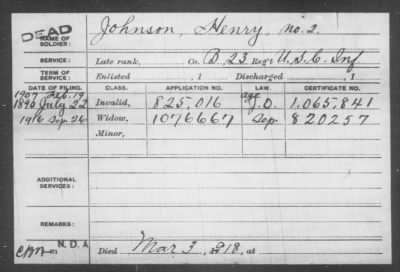 DEAD
NAME OF SOLDIER: Johnson, Henry, No. 2.
SERVICE: Late rank, Co. B, 23 Reg't U.S.C. Inf.
TERM OF SERVICE: Enlisted , 1 Discharged , 1
DATE OF FILING. CLASS. APPLICATION NO. LAW. CERTIFICATE NO.
1907 Feb. 19 age
1890 July 22 Invalid, 825,016 J.O. 1,065,841
1916 Sep. 26 Widow, 1076667 Sep. 820257
Minor,
ADDITIONAL SERVICES:
REMARKS:
N.D.A
on
Died Mar 3, 18, at